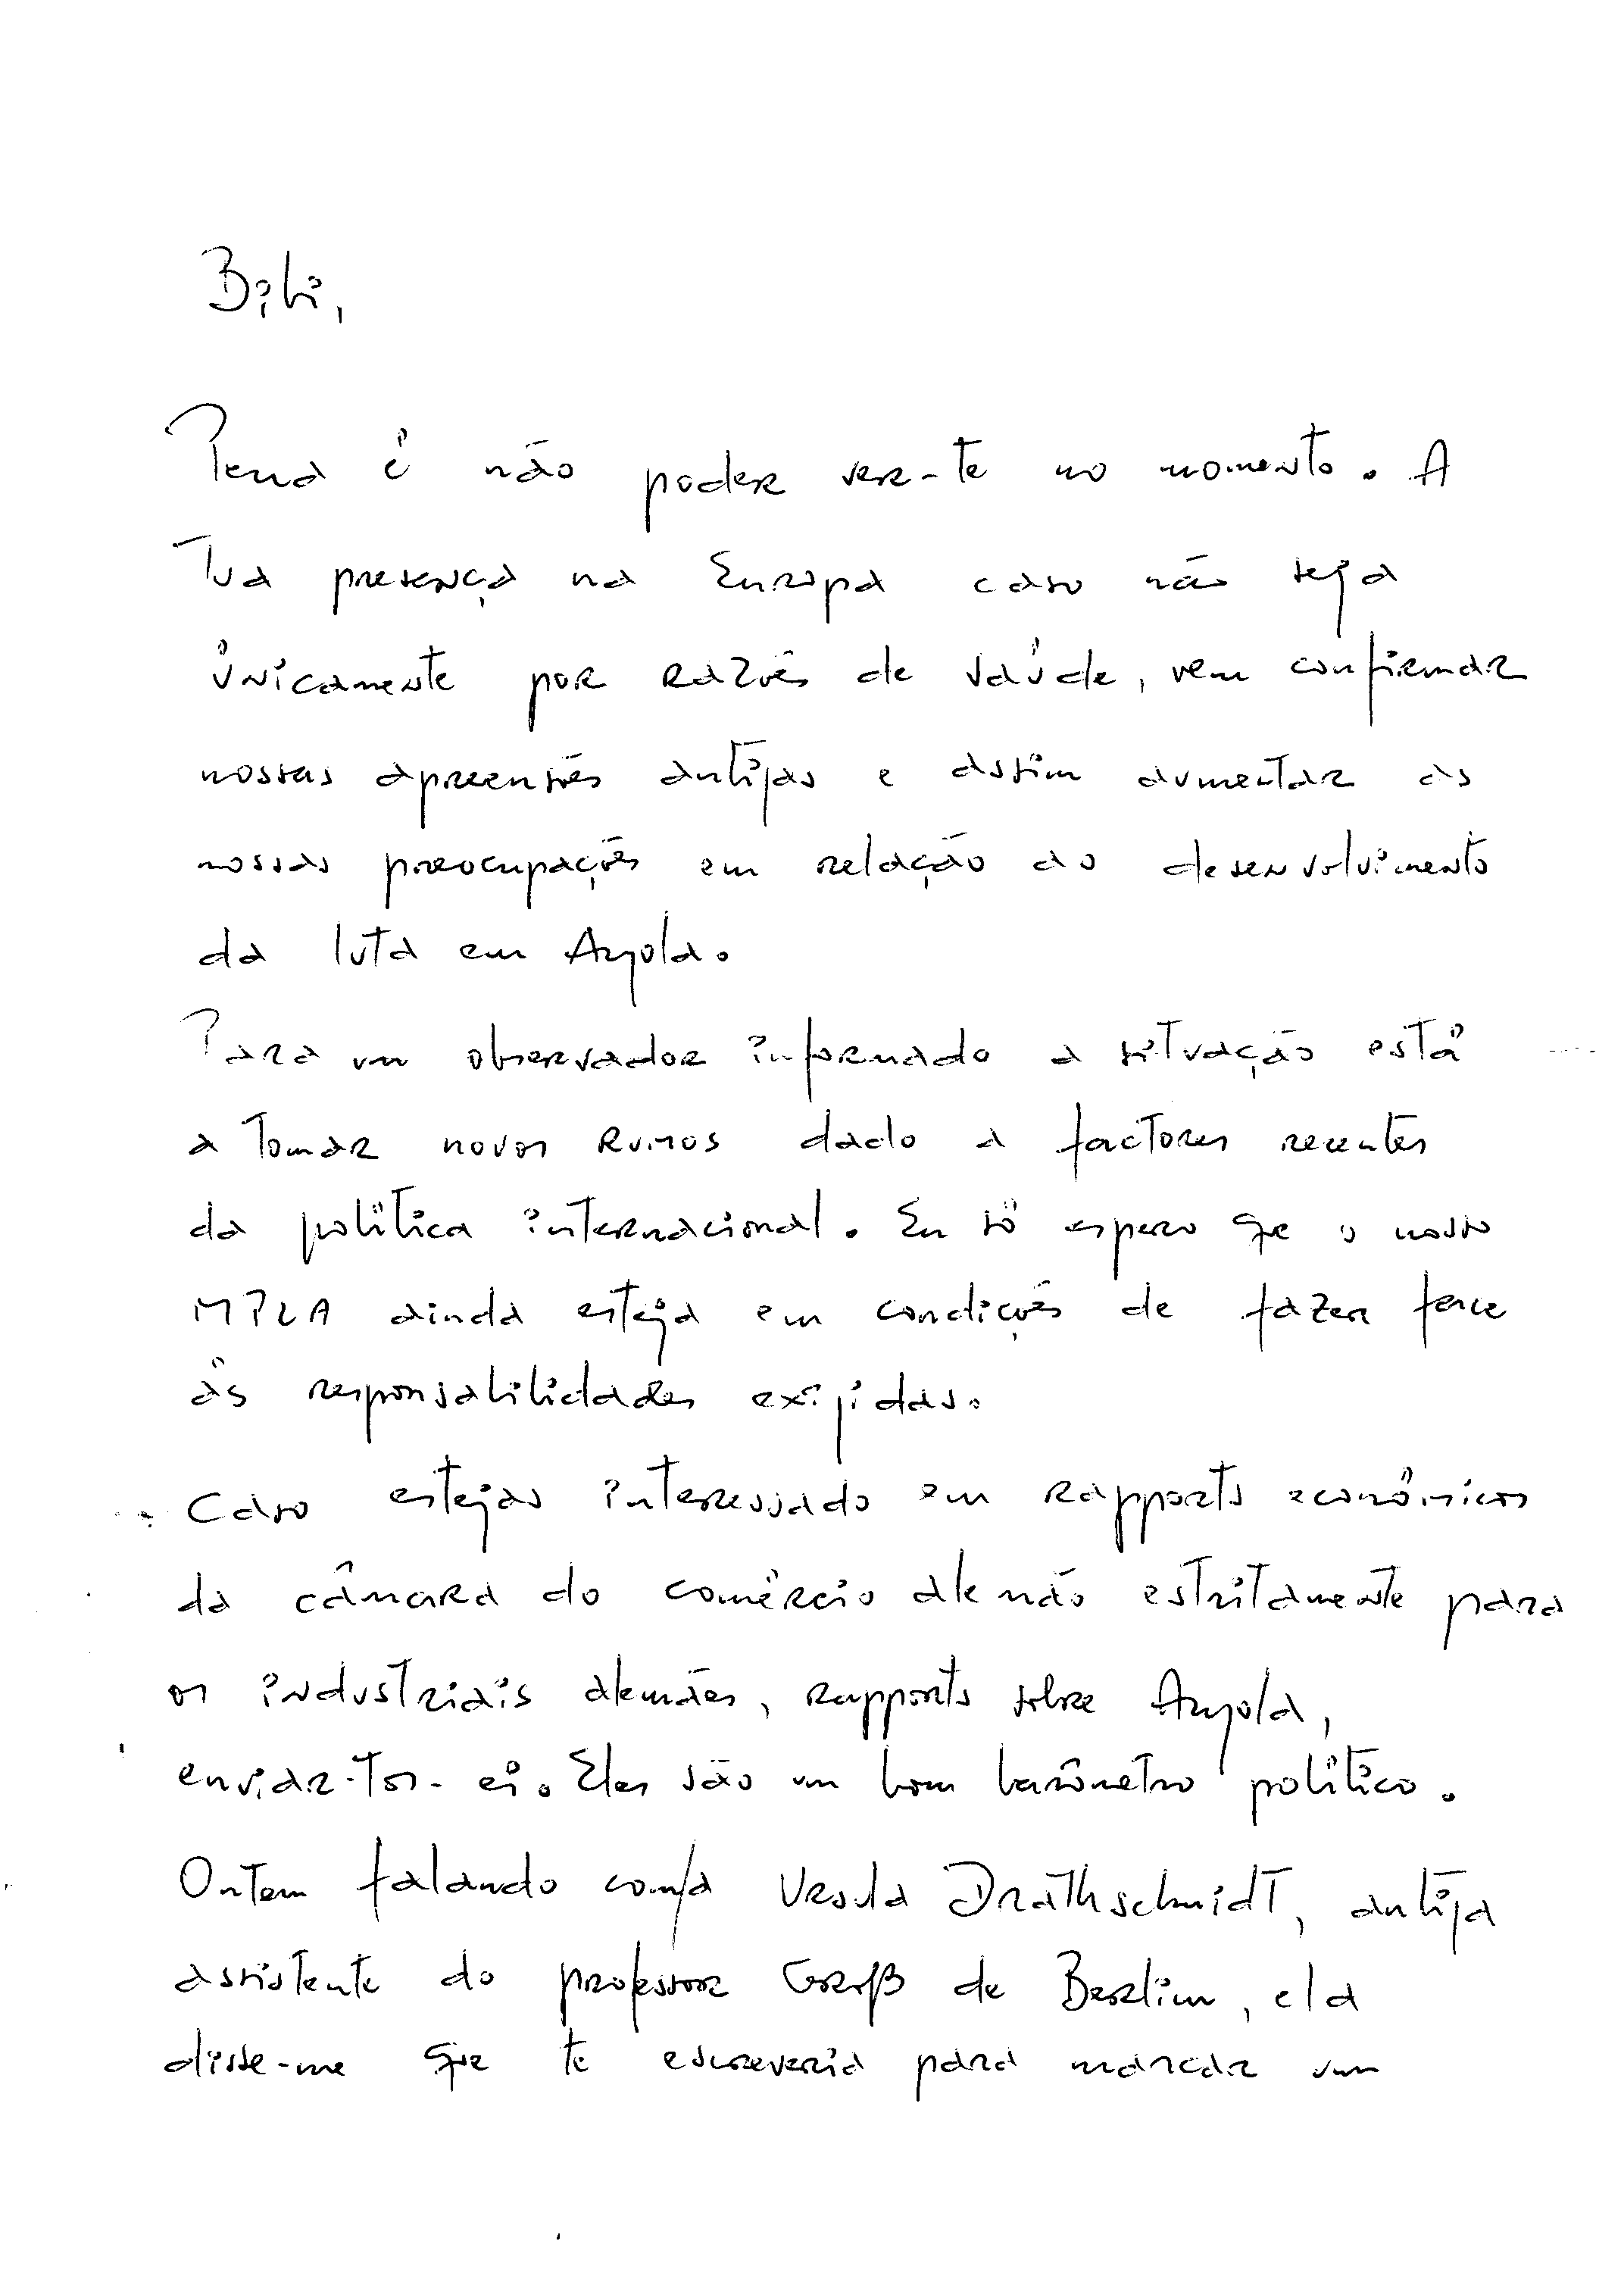 Bibi,
Pena é não poder ver-te no momento. A
Tua presença na Europa caso não seja
únicamente por razões de saúde, vem confirmar
nossas apreensões antigas e assim aumentar as
nossas preocupações em relação ao desenvolvimento
da luta em Angola.
Para um observador informado a situação está
a tomar novos rumos dado a factores recentes
da política internacional. Eu só espero que o nosso
MPLA ainda esteja em condições de fazer face
às responsabilidades exigidas.
Caso estejas interessado em rapports económicos
da câmara do comércio alemão estritamente para
os industriais alemães, rapports sobre Angola,
enviar-tos-ei. Eles são um bom barómetro político.
Ontem falando com/a Ursula Drathschmidt, antiga
assistente do professor Groß de Berlim, ela
disse-me que te escreveria para marcar um